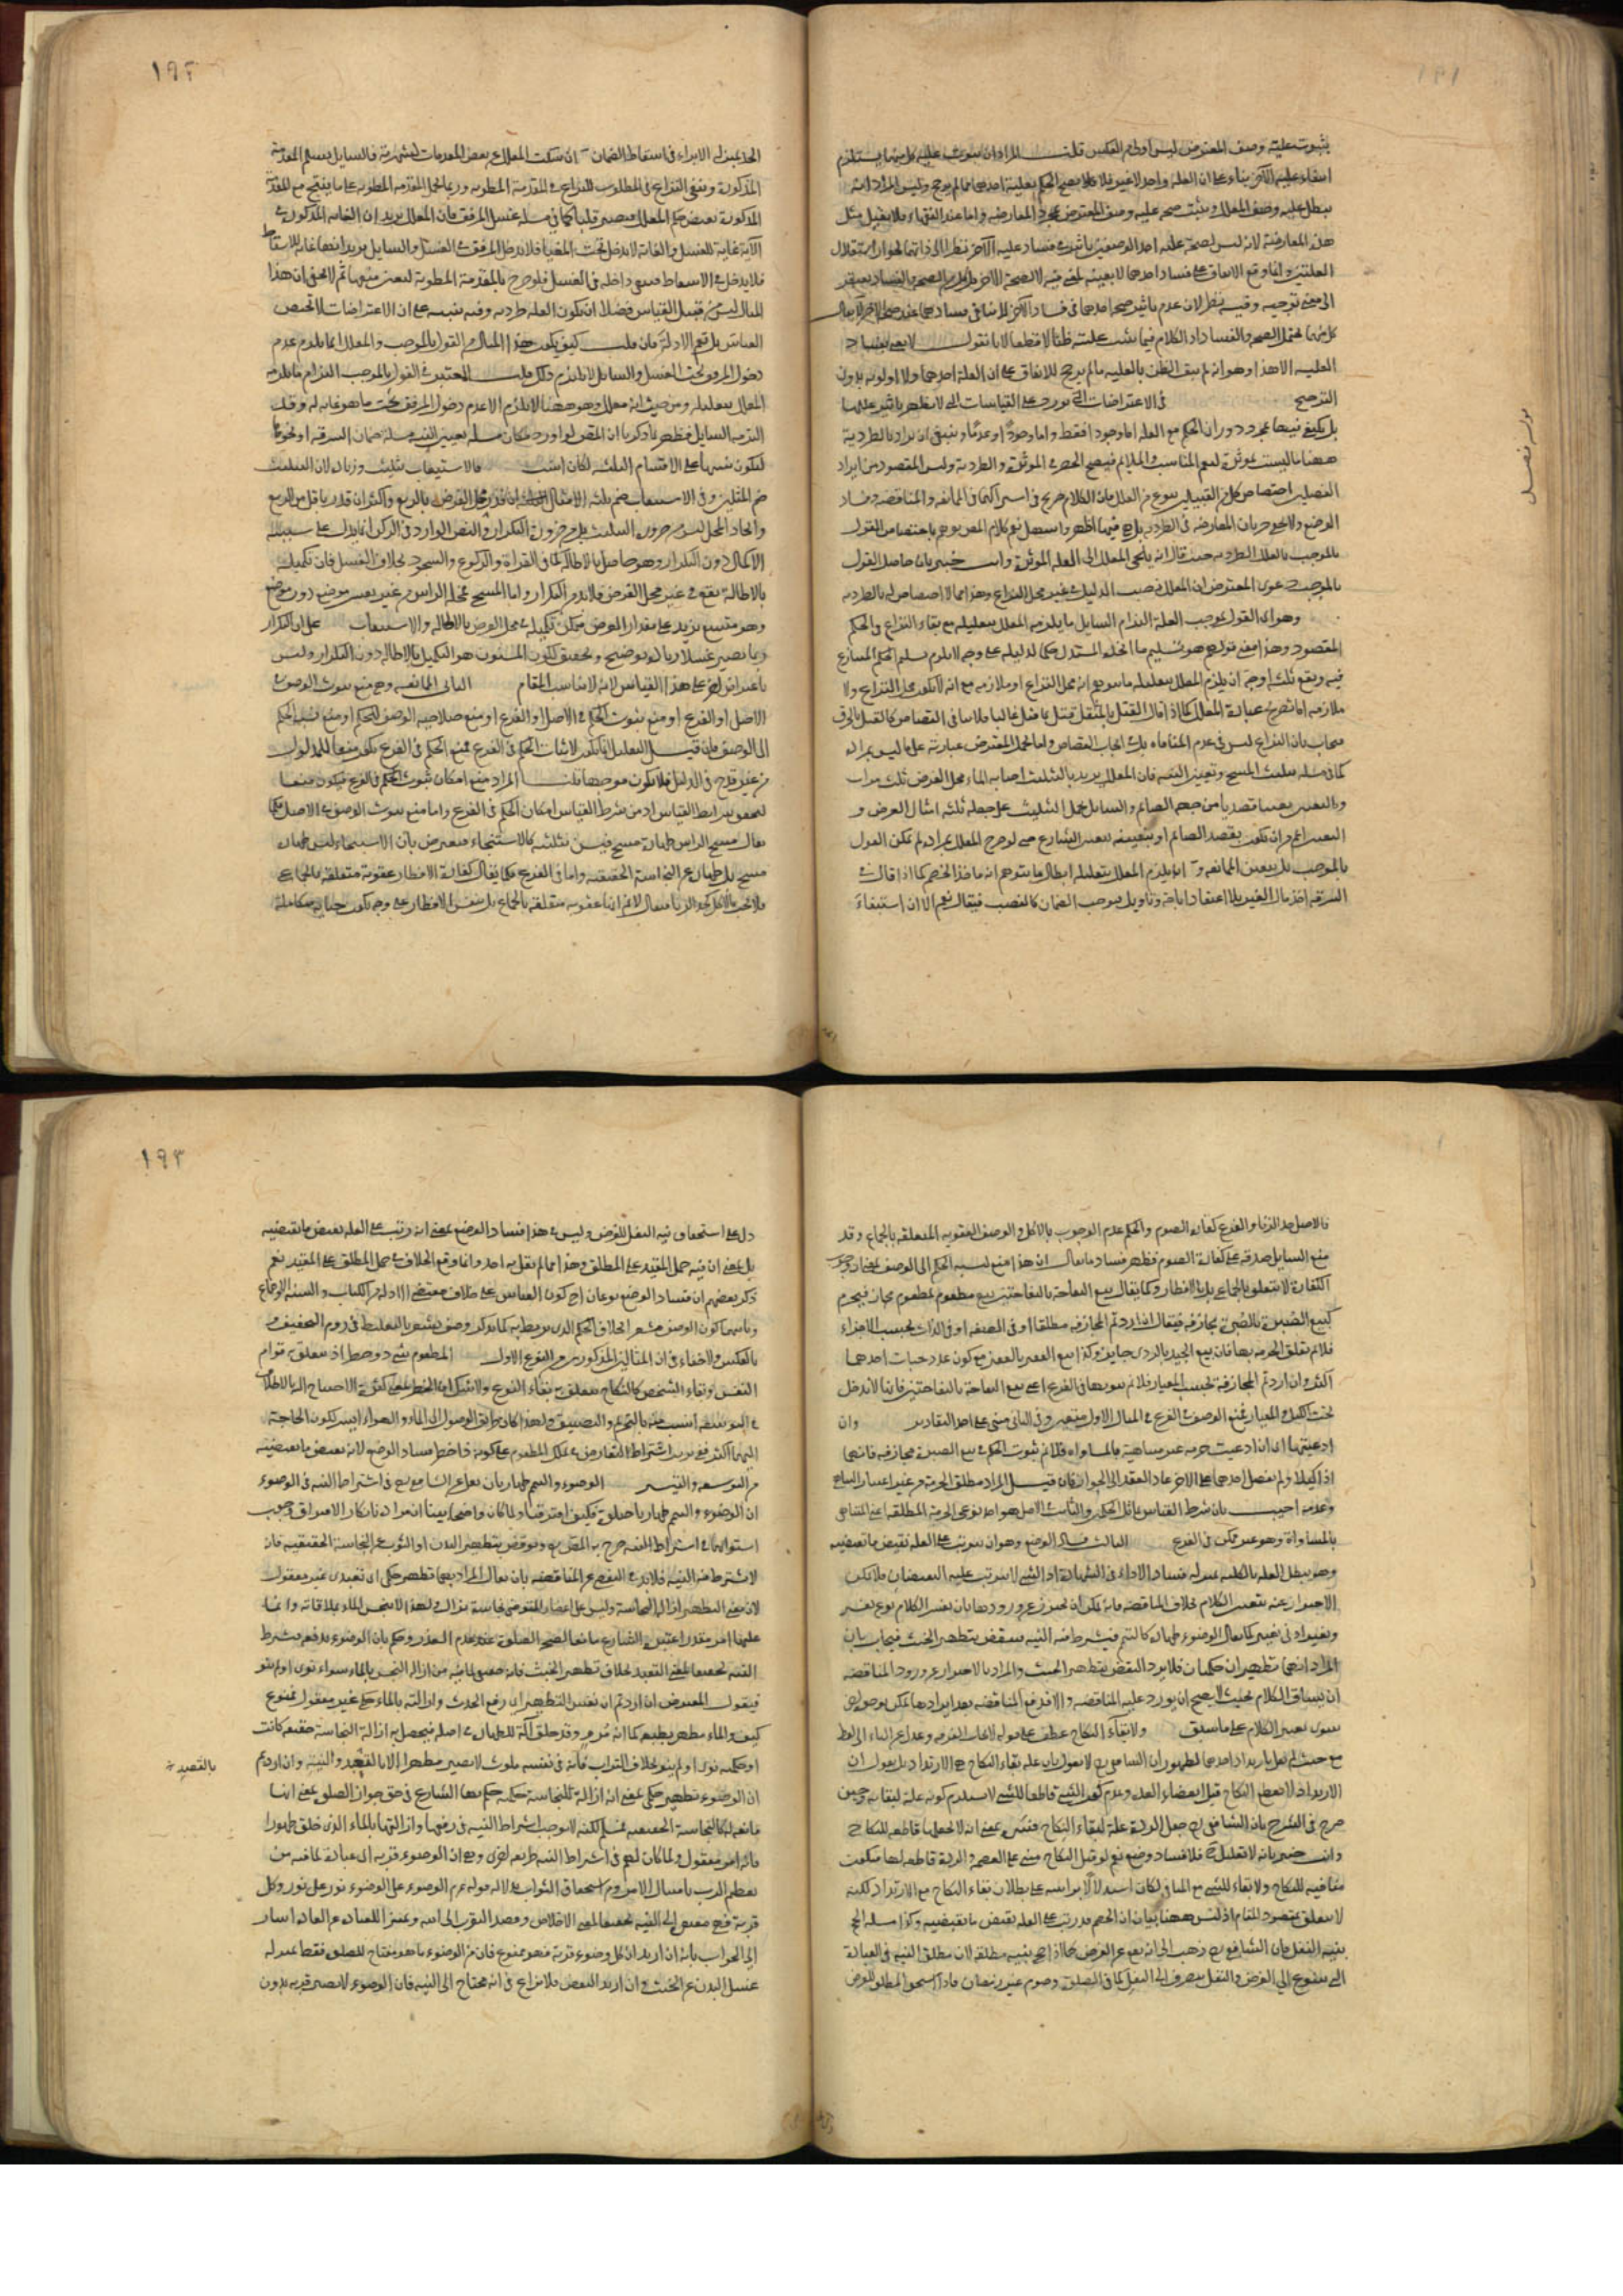 ١٩٢
بثبوت علية وصف المعترض ليس اولى من العكس قلت المراد ان ثبوت علية كل منهما يستلزم
انتفاء علية الآخر بناء على ان العلة واحد لا غير فلا يصح الحكم بعلية احدهما ما لم يرجح وليس المراد انه
يبطل علية وصف المعلل ويثبت صحة علية وصف المعترض بمجرد المعارضة واما عند الفقهاء فلا يقبل مثل
هذه المعارضة لانه ليس لصحة علية احد الوصفين تاثير في فساد علية الآخر نظرا الى ذاتهما لجواز استقلال
العلتين وانما وقع الاتفاق على فساد احدهما لا بعينه
الى معنى توجيه وفيه نظر لان عدم تاثير صحة احدهما في فساد الآخر لا ينافي فساد
كل منهما يحتمل الصحة والفساد اذ الكلام فيما يثبت عليته ظنا لا قطعا لانا نقول لا نعني بفساد
العلية الا هذا وهو انه لم يبق الظن بالعلية ما لم يرجح للاتفاق على ان العلة احدهما ولا اولوية بدون
الترجيح في الاعتراضات التي تورد على القياسات التي لا يظهر تاثير عللها
بل يكتفى فيها بمجرد دوران الحكم مع العلة اما وجودا فقط واما وجودا وعدما وينبغي ان يراد بالطردية
ههنا ما ليست بموثرة ليعم المناسب والملائم فيصح الحصر في الموثرة والطردية وليس المقصود من ايراد
الفصلين اختصاص كل من القبيلين بنوع من العلل فان الكلام صريح في اشتراكهما في الممانعة والمناقضة وفساد
الوضع ولا يخفى جريان المعارضة في الطردية بل هي فيها اظهر واسهل نعم كلام المص يوهم باختصاص القول
بالموجب بالعلل الطردية حيث قال انه يلجئ المعلل الى العلة الموثرة وانت خبير بان حاصل القول
بالموجب دعوى المعترض ان المعلل نصب الدليل في غير محل النزاع وهذا مما لا اختصاص له بالطردية
وهو اي القول بموجب العلة التزام السايل ما يلزمه المعلل بتعليله مع بقاء النزاع في الحكم
المقصود وهذا معنى قولهم هو تسليم ما اتخذه المستدل حكما لدليله على وجه لا يلزم تسليم الحكم المتنازع
فيه ويقع على ثلثة اوجه ان يلزم المعلل بتعليله ما يتوهم انه محل النزاع او ملازمه مع انه لا يكون محل النزاع ولا
ملازمه اما بصريح عبارة المعلل كما اذا قال القتل بالمثقل قتل بما يقتل غالبا فلا ينافي القصاص كالقتل بالحرق
فيجاب بان النزاع ليس في عدم المنافاة بل في ايجاب القصاص واما بحمل المعترض عبارته على ما ليس بمراده
كما في مسئلة تثليث المسح وتعيين النية فان المعلل يريد بالتثليث اصابة الماء محل الفرض ثلث مرات
وبالتعيين تعيينا قصديا من جهة الصائم والسايل يحمل التثليث على جعله ثلثة امثال الفرض و
التعيين اعم من ان يكون بقصد الصائم او بتعيينه بتعيين الشارع حتى لو صرح المعلل بمراده لم يمكن القول
بالموجب بل يتعين الممانعة ان يلزم المعلل بتعليله ابطال ما يتوهم انه ماخذ الخصم كما اذا قال في
السرقة اخذ مال الغير بلا اعتقاد اباحة وتاويل فيوجب الضمان كالغصب فيقال نعم الا ان استيفاء
الحد بمنزلة الابراء في اسقاط الضمان ان يسكت المعلل عن بعض المقدمات لشهرته فالسايل يسلم المقدمة
المذكورة ويبقى النزاع في المطلوب للنزاع في المقدمة المطوية وربما يحمل المقدمة المطوية على ما ينتج مع المقدمة
المذكورة نقيض حكم المعلل فيصير قلبا كما في مسئلة غسل المرفق فان المعلل يريد ان الغاية المذكورة في
الآية غاية للغسل والغاية لا تدخل تحت المغيا فلا يدخل المرفق في الغسل والسايل يريد انها غاية للاسقاط
فلا يدخل في الاسقاط فتبقى داخلة في الغسل فلو صرح بالمقدمة المطوية لتعين منعها ثم لا يخفى ان هذا
المثال ليس من قبيل القياس فضلا ان يكون العلة طردية وفيه تنبيه على ان الاعتراضات لا تخص
القياس بل تعم الادلة فان قلت كيف يكون هذا المثال من القول بالموجب والمعلل انما يلزم عدم
دخول المرفق تحت الغسل والسائل لا يلتزم ذلك قلت المعتبر في القول بالموجب التزام ما يلزمه
المعلل بتعليله ومن حيث انه معلل وهو ههنا لا يلزم الا عدم دخول المرفق تحت ما هو غاية له وقد
التزمه السايل فظهر بما ذكرنا ان المص لو اورد مكان مسئلة تعيين النية مسئلة ضمان السرقة او نحوها
لتكون تنبيها على الاقسام الثلثة لكان انسب فالاستيعاب تثليث وزيادة لان التثليث
ضم المثلين وفي الاستيعاب ضم ثلثة الامثال ان قدر محل الفرض بالربع واكثر ان قدر باقل من الربع
واتحاد المحل ليس من ضرورة التثليث بل من ضرورة التكرار والنص الوارد في الركن انما يدل على سنية
الاكمال دون التكرار وهو حاصل بالاطالة كما في القراءة والركوع والسجود بخلاف الغسل فان تكميله
بالاطالة يقع في غير محل الفرض فلا بد من التكرار واما المسح فمحله الراس من غير تعيين موضع دون موضع
وهو متسع يزيد على مقدار الفرض فيمكن تكميله في محل الفرض بالاطالة والاستيعاب على ان التكرار
ربما يصير غسلا زيادة توضيح وتحقيق لكون المسنون هو التكميل بالاطالة دون التكرار وليس
باعتراض آخر على هذا القياس لانه لا يناسب المقام الثاني الممانعة وهي منع ثبوت الوصف في
الاصل او الفرع او منع ثبوت الحكم في الاصل او الفرع او منع صلاحية الوصف للحكم او منع نسبة الحكم
الى الوصف فان قيل التعليل انما يكون لاثبات الحكم في الفرع فمنع الحكم في الفرع يكون منعا للمدلول
من غير قدح في الدليل فلا يكون موجها قلت المراد منع امكان ثبوت الحكم في الفرع فيكون منعا
لتحقق شرايط القياس اذ من شرط القياس امكان الحكم في الفرع واما منع ثبوت الوصف في الاصل فكما
يقال مسح الراس طهارة مسح فيسن تثليثه كالاستنجاء فيعترض بان الاستنجاء ليس طهارة
مسح بل طهارة عن النجاسة الحقيقية واما في الفرع فكما يقال كفارة الافطار عقوبة متعلقة بالجماع
فلا تجب بالاكل كحد الزنا فيقال لا نم انها عقوبة متعلقة بالجماع بل بنفس الافطار على وجه يكون جناية متكاملة
١٩٣
فالاصل حد الزنا والفرع كفارة الصوم والحكم عدم الوجوب بالاكل والوصف العقوبة المتعلقة بالجماع وقد
منع السايل صدقه على كفارة الصوم فظهر فساد ما يقال ان هذا منع لنسبة الحكم الى الوصف
الكفارة لا يتعلق بالجماع بل بالافطار وكما يقال بيع التفاحة بالتفاحتين بيع مطعوم بمطعوم مجازفة فيحرم
كبيع الصبرة بالصبرة مجازفة فيقال ان اردتم المجازفة مطلقا او في الصفة او في الذات بحسب الاجزاء
فلا نم تعلق الحرمة بها فان بيع الجيد بالردي جايز وكذا بيع القفيز بالقفيز مع كون عدد حبات احدهما
اكثر وان اردتم المجازفة بحسب المعيار فلا نم ثبوتها في الفرع اعني بيع التفاحة بالتفاحتين فانها لا تدخل
تحت الكيل والمعيار فمنع الوصف في الفرع في المثال الاول متعين وفي الثاني مبني على احد التقادير وان
ادعيتها اي ان ادعيت حرمة غير متناهية بالمساواة فلا نم ثبوت الحكم في بيع الصبرة مجازفة فانهما
اذا كيلا ولم يفضل احدهما على الآخر عاد العقد الى الجواز فان قيل المراد مطلق الحرمة من غير اعتبار التناهي
وعدمه اجيب بان شرط القياس تماثل الحكمين والثابت في الاصل هو احد نوعي الحرمة المطلقة اعني المتناهي
بالمساواة وهو غير ممكن في الفرع الثالث فساد الوضع وهو ان يترتب على العلة نقيض ما تقتضيه
وهو يبطل العلة بالكلية بمنزلة فساد الاداء في الشهادة اذ الشيء لا يترتب عليه النقيضان فلا يمكن
الاحتراز عنه بتغيير الكلام بخلاف المناقضة فانه يمكن ان يحترز عن ورودها بان يفسر الكلام نوع تفسير
ويغير ادنى تغيير كما يقال الوضوء طهارة كالتيمم فيشترط فيه النية فينقض بتطهير الخبث فيجاب بان
المراد انهما تطهيران حكميان فلا يرد النقض بتطهير الخبث والمراد بالاحتراز عن ورود المناقضة
ان يساق الكلام بحيث لا يصح ان يورد عليه المناقضة والا فدفع المناقضة بعد ايرادها يمكن بوجوه اخر
سوى تغيير الكلام على ما سبق ولا بقاء النكاح عطف على قوله لايجاب الفرقة
مع حيث لم يقل بارتداد احدهما لظهور ان الشافعي رح لا يقول بان علة بقاء النكاح هي الارتداد بل يقول ان
الارتداد لا يقطع النكاح قبل انقضاء العدة وعدم كون الشيء قاطعا للشيء لا يستلزم كونه علة لبقائه وحين
صرح في الشرح بان الشافعي رح جعل الردة علة لبقاء النكاح فسره بمعنى انه لا يجعلها قاطعة للنكاح
وانت خبير بانه لا تعليل ح فلا فساد وضع نعم لو قيل النكاح مبني على العصمة والردة قاطعة لها فيكون
منافية للنكاح ولا بقاء للشيء مع المنافي لكان استدلالا براسه على بطلان بقاء النكاح مع الارتداد لكنه
لا يتعلق بمقصود المقام اذ ليس ههنا بيان ان الخصم قد رتب على العلة نقيض ما تقتضيه وكذا مسئلة الحج
بنية النفل فان الشافعي رح ذهب الى انه يقع عن الفرض كما اذا حج بنية مطلقة لان مطلق النية في العبادة
التي تتنوع الى الفرض والنفل ينصرف الى النفل كما في الصلوة وصوم غير رمضان فاذا استحق المطلق للفرض
دل على استحقاق نية النفل للفرض وليس في هذا فساد الوضع بمعنى انه رتب على العلة نقيض ما تقتضيه
بل بمعنى ان فيه حمل المقيد على المطلق وهذا مما لم يقل به احد وانما وقع الخلاف في حمل المطلق على المقيد نعم
ذكر بعضهم ان فساد الوضع نوعان احدهما كون القياس على خلاف مقتضى الادلة من الكتاب والسنة والاجماع
وثانيهما كون الوصف مشعرا بخلاف الحكم الذي يربط به كما يذكر وصف يشعر بالتغليظ في روم التخفيف و
بالعكس ولا خفاء في ان المثالين المذكورين من النوع الاول المطعوم شيء ذو خطر اذ يتعلق به قوام
النفس وبقاء الشخص كالنكاح يتعلق به بقاء النوع
في التوسعة انسب منه بالتحريم والتضييق ولهذا كان طريق الوصول الى الماء والهواء ايسر لكون الحاجة
اليهما اكثر ففي ترتيب اشتراط التقابض في تملك المطعوم على كونه ذا خطر فساد الوضع لانه نقيض ما يقتضيه
من التوسعة والتيسير الوضوء والتيمم طهارتان نقل عن الشافعي رح في اشتراط النية في الوضوء
ان الوضوء والتيمم طهارتا صلوة فكيف افترقتا ولما كان واضحا بينا ان مراده انكار الافتراق ووجوب
استوائهما في اشتراط النية صرح به المص رح ونوقض بتطهير البدن او الثوب عن النجاسة الحقيقية فانه
لا يشترط فيه النية فلا بد في التفصي عن المناقضة بان يقال المراد بهما تطهير حكمي اي تعبدي غير معقول
لان معنى التطهير ازالة النجاسة وليس على اعضاء المتوضي نجاسة تزال ولهذا لا يتنجس الماء بملاقاته وانما
عليها امر مقدر اعتبره الشارع مانعا لصحة الصلوة عند عدم العذر وحكم بان الوضوء يرفعه بشرط
النية تحقيقا لمعنى التعبد بخلاف تطهير الخبث فانه حقيقي لما فيه من ازالة النجس بالماء سواء نوى او لم ينو
فيقول المعترض ان اردتم ان نفس التطهير اي رفع الحدث وازالته بالماء حكمي غير معقول فممنوع
كيف والماء مطهر بطبعه كما انه مرو وقد خلق آلة للطهارة في اصله فيحصل به ازالة النجاسة حقيقة كانت
او حكمية نوى او لم ينو بخلاف التراب فانه في نفسه ملوث لا يصير مطهرا الا بالقصد والنية وان اردتم
بالقصد
ان الوضوء تطهير حكمي بمعنى انه ازالة للنجاسة حكمية حكم بها الشارع في حق جواز الصلوة بمعنى انها
مانعة له كالنجاسة الحقيقية فمسلم لكنه لا يوجب اشتراط النية في رفعها وازالتها بالماء الذي خلق طهورا
فانه امر معقول ولما كان لهم في اشتراط النية طريقة اخرى وهي ان الوضوء قربة اي عبادة لما فيه من
تعظيم الرب بامتثال الامر ومن استحقاق الثواب بدلالة قوله عم الوضوء على الوضوء نور على نور وكل
قربة فهي مفتقر الى النية تحقيقا لمعنى الاخلاص وقصد التقرب الى الله وتمييزا للعبادة عن العادة اشار
الى الجواب بانه ان اريد ان كل وضوء قربة فهو ممنوع فان من الوضوء ما هو مفتاح للصلوة فقط بمنزلة
غسل البدن عن الخبث وان اريد البعض فلا نزاع في انه محتاج الى النية فان الوضوء لا يصير قربة بدون